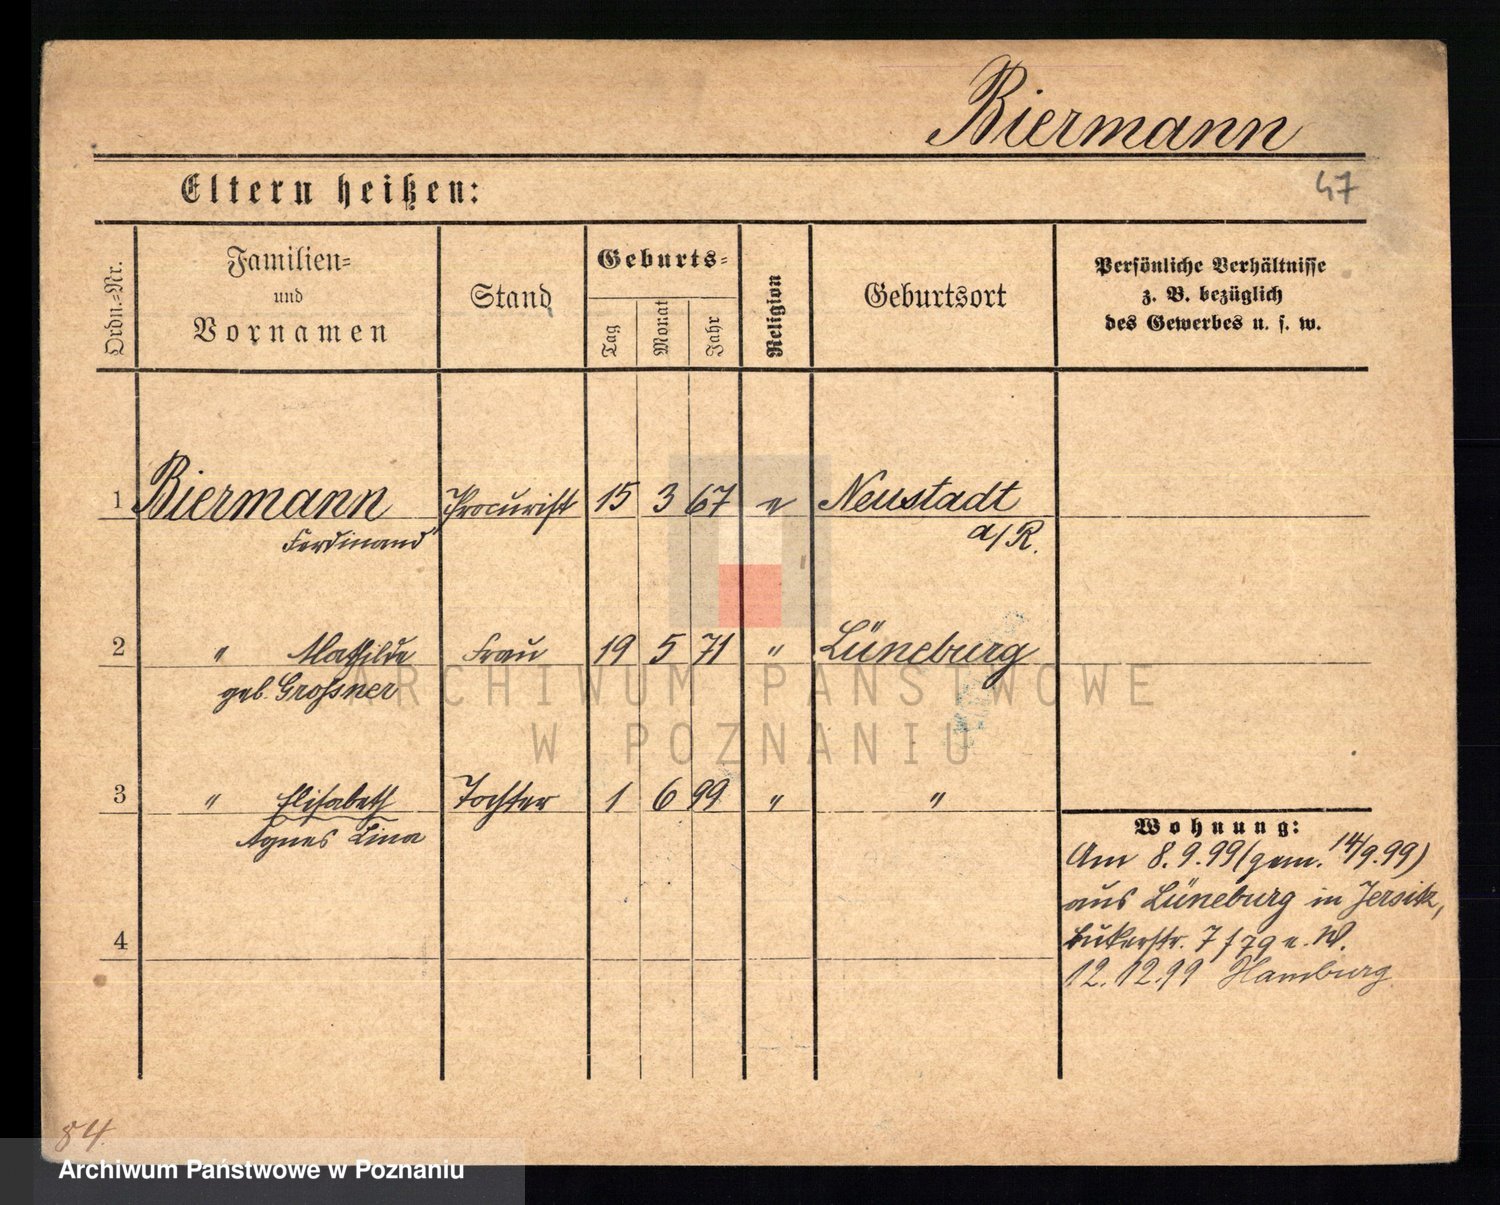 Biermann
Eltern heißen:
47
Ordn.-Nr.
Familien-
und
Vornamen
Stand
Geburts-
Tag
Monat
Jahr
Religion
Geburtsort
Persönliche Verhältnisse
z. B. bezüglich
des Gewerbes u. s. w.
1 Biermann Procurist 15 3 67 e Neustadt
Ferdinand a/R.
2 " Mathilde Frau 19 5 71 " Lüneburg
geb. Grossner
3 " Elisabeth Tochter 1 6 99 " "
Agnes Lina
Wohnung:
Am 8.9.99 (gem. 14/9.99)
aus Lüneburg in Jersitz,
7
4
12.12.99 Hamburg
84.
ARCHIWUM PAŃSTWOWE
W POZNANIU
Archiwum Państwowe w Poznaniu